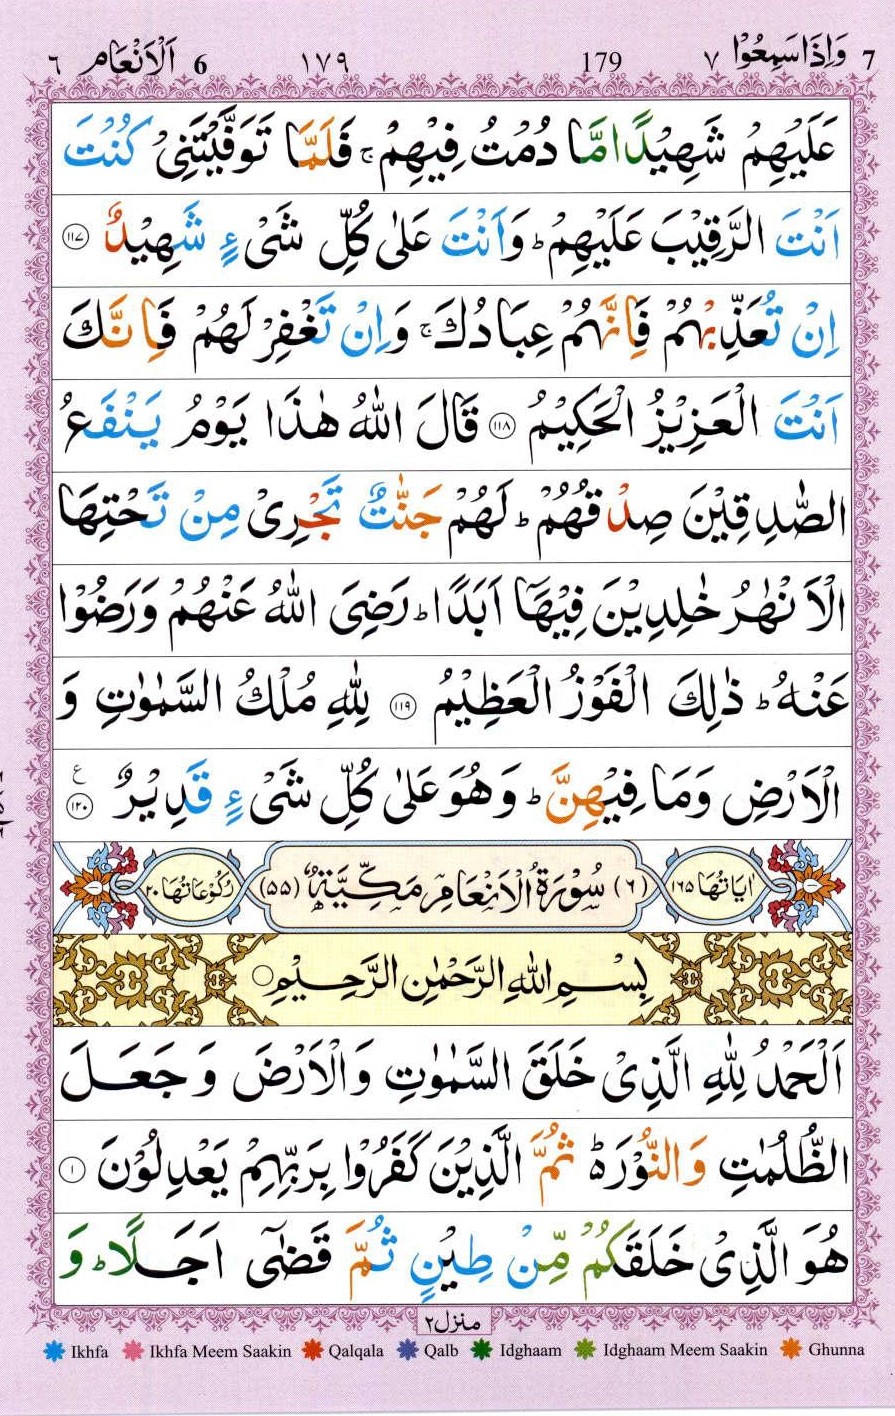 7 وَاِذَا سَمِعُوْا ٧ 179 ١٧٩ 6 اَلْاَنْعَام ٦
عَلَيْهِمْ شَهِيْدًا مَّا دُمْتُ فِيْهِمْ ۚ فَلَمَّا تَوَفَّيْتَنِيْ كُنْتَ
اَنْتَ الرَّقِيْبَ عَلَيْهِمْ ؕ وَاَنْتَ عَلٰى كُلِّ شَيْءٍ شَهِيْدٌ ۝١١٧
اِنْ تُعَذِّبْهُمْ فَاِنَّهُمْ عِبَادُكَ ۚ وَاِنْ تَغْفِرْ لَهُمْ فَاِنَّكَ
اَنْتَ الْعَزِيْزُ الْحَكِيْمُ ۝١١٨ قَالَ اللّٰهُ هٰذَا يَوْمُ يَنْفَعُ
الصّٰدِقِيْنَ صِدْقُهُمْ ؕ لَهُمْ جَنّٰتٌ تَجْرِيْ مِنْ تَحْتِهَا
الْاَنْهٰرُ خٰلِدِيْنَ فِيْهَاۤ اَبَدًا ؕ رَضِيَ اللّٰهُ عَنْهُمْ وَرَضُوْا
عَنْهُ ؕ ذٰلِكَ الْفَوْزُ الْعَظِيْمُ ۝١١٩ لِلّٰهِ مُلْكُ السَّمٰوٰتِ وَ
الْاَرْضِ وَمَا فِيْهِنَّ ؕ وَهُوَ عَلٰى كُلِّ شَيْءٍ قَدِيْرٌ ۝١٢٠ ع
اٰيَاتُهَا ١٦٥ (٦) سُوْرَةُ الْاَنْعَامِ مَكِّيَّةٌ (٥٥) رُكُوْعَاتُهَا ٢٠
بِسْمِ اللّٰهِ الرَّحْمٰنِ الرَّحِيْمِ ۝
اَلْحَمْدُ لِلّٰهِ الَّذِيْ خَلَقَ السَّمٰوٰتِ وَالْاَرْضَ وَجَعَلَ
الظُّلُمٰتِ وَالنُّوْرَ ؕ ثُمَّ الَّذِيْنَ كَفَرُوْا بِرَبِّهِمْ يَعْدِلُوْنَ ۝١
هُوَ الَّذِيْ خَلَقَكُمْ مِّنْ طِيْنٍ ثُمَّ قَضٰۤى اَجَلًا ؕ وَ
منزل ٢
Ikhfa Ikhfa Meem Saakin Qalqala Qalb Idghaam Idghaam Meem Saakin Ghunna